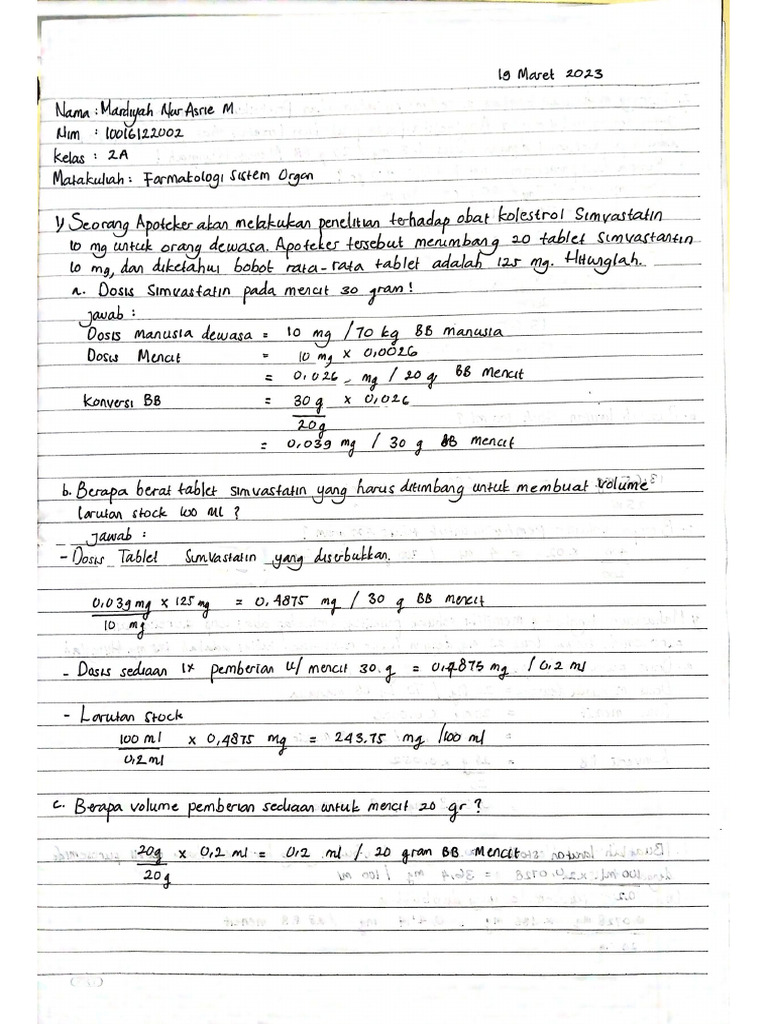 19 Maret 2023
Nama : Mardiyah Nur Asrie M
Nim : 10016122002
Kelas : 2A
Matakuliah : Farmakologi Sistem Organ
1) Seorang Apoteker akan melakukan penelitian terhadap obat kolestrol Simvastatin
10 mg untuk orang dewasa. Apoteker tersebut menimbang 20 tablet Simvastantin
10 mg, dan diketahui bobot rata-rata tablet adalah 125 mg. Hitunglah.
a. Dosis Simvastatin pada mencit 30 gram!
jawab :
Dosis manusia dewasa = 10 mg / 70 kg BB manusia
Dosis Mencit = 10 mg x 0,0026
= 0,026 mg / 20 g BB mencit
Konversi BB = 30 g x 0,026
20 g
= 0,039 mg / 30 g BB mencit
b. Berapa berat tablet simvastatin yang harus ditimbang untuk membuat volume
larutan stock 100 ml ?
Jawab :
- Dosis Tablet Simvastatin yang diserbukkan.
0,039 mg x 125 mg = 0,4875 mg / 30 g BB mencit
10 mg
- Dosis sediaan 1x pemberian u/ mencit 30 g = 0,4875 mg / 0,2 ml
- Larutan stock
100 ml x 0,4875 mg = 243.75 mg /100 ml
0,2 ml
c. Berapa volume pemberian sediaan untuk mencit 20 gr ?
20g x 0,2 ml = 0,2 ml / 20 gram BB Mencit
20g